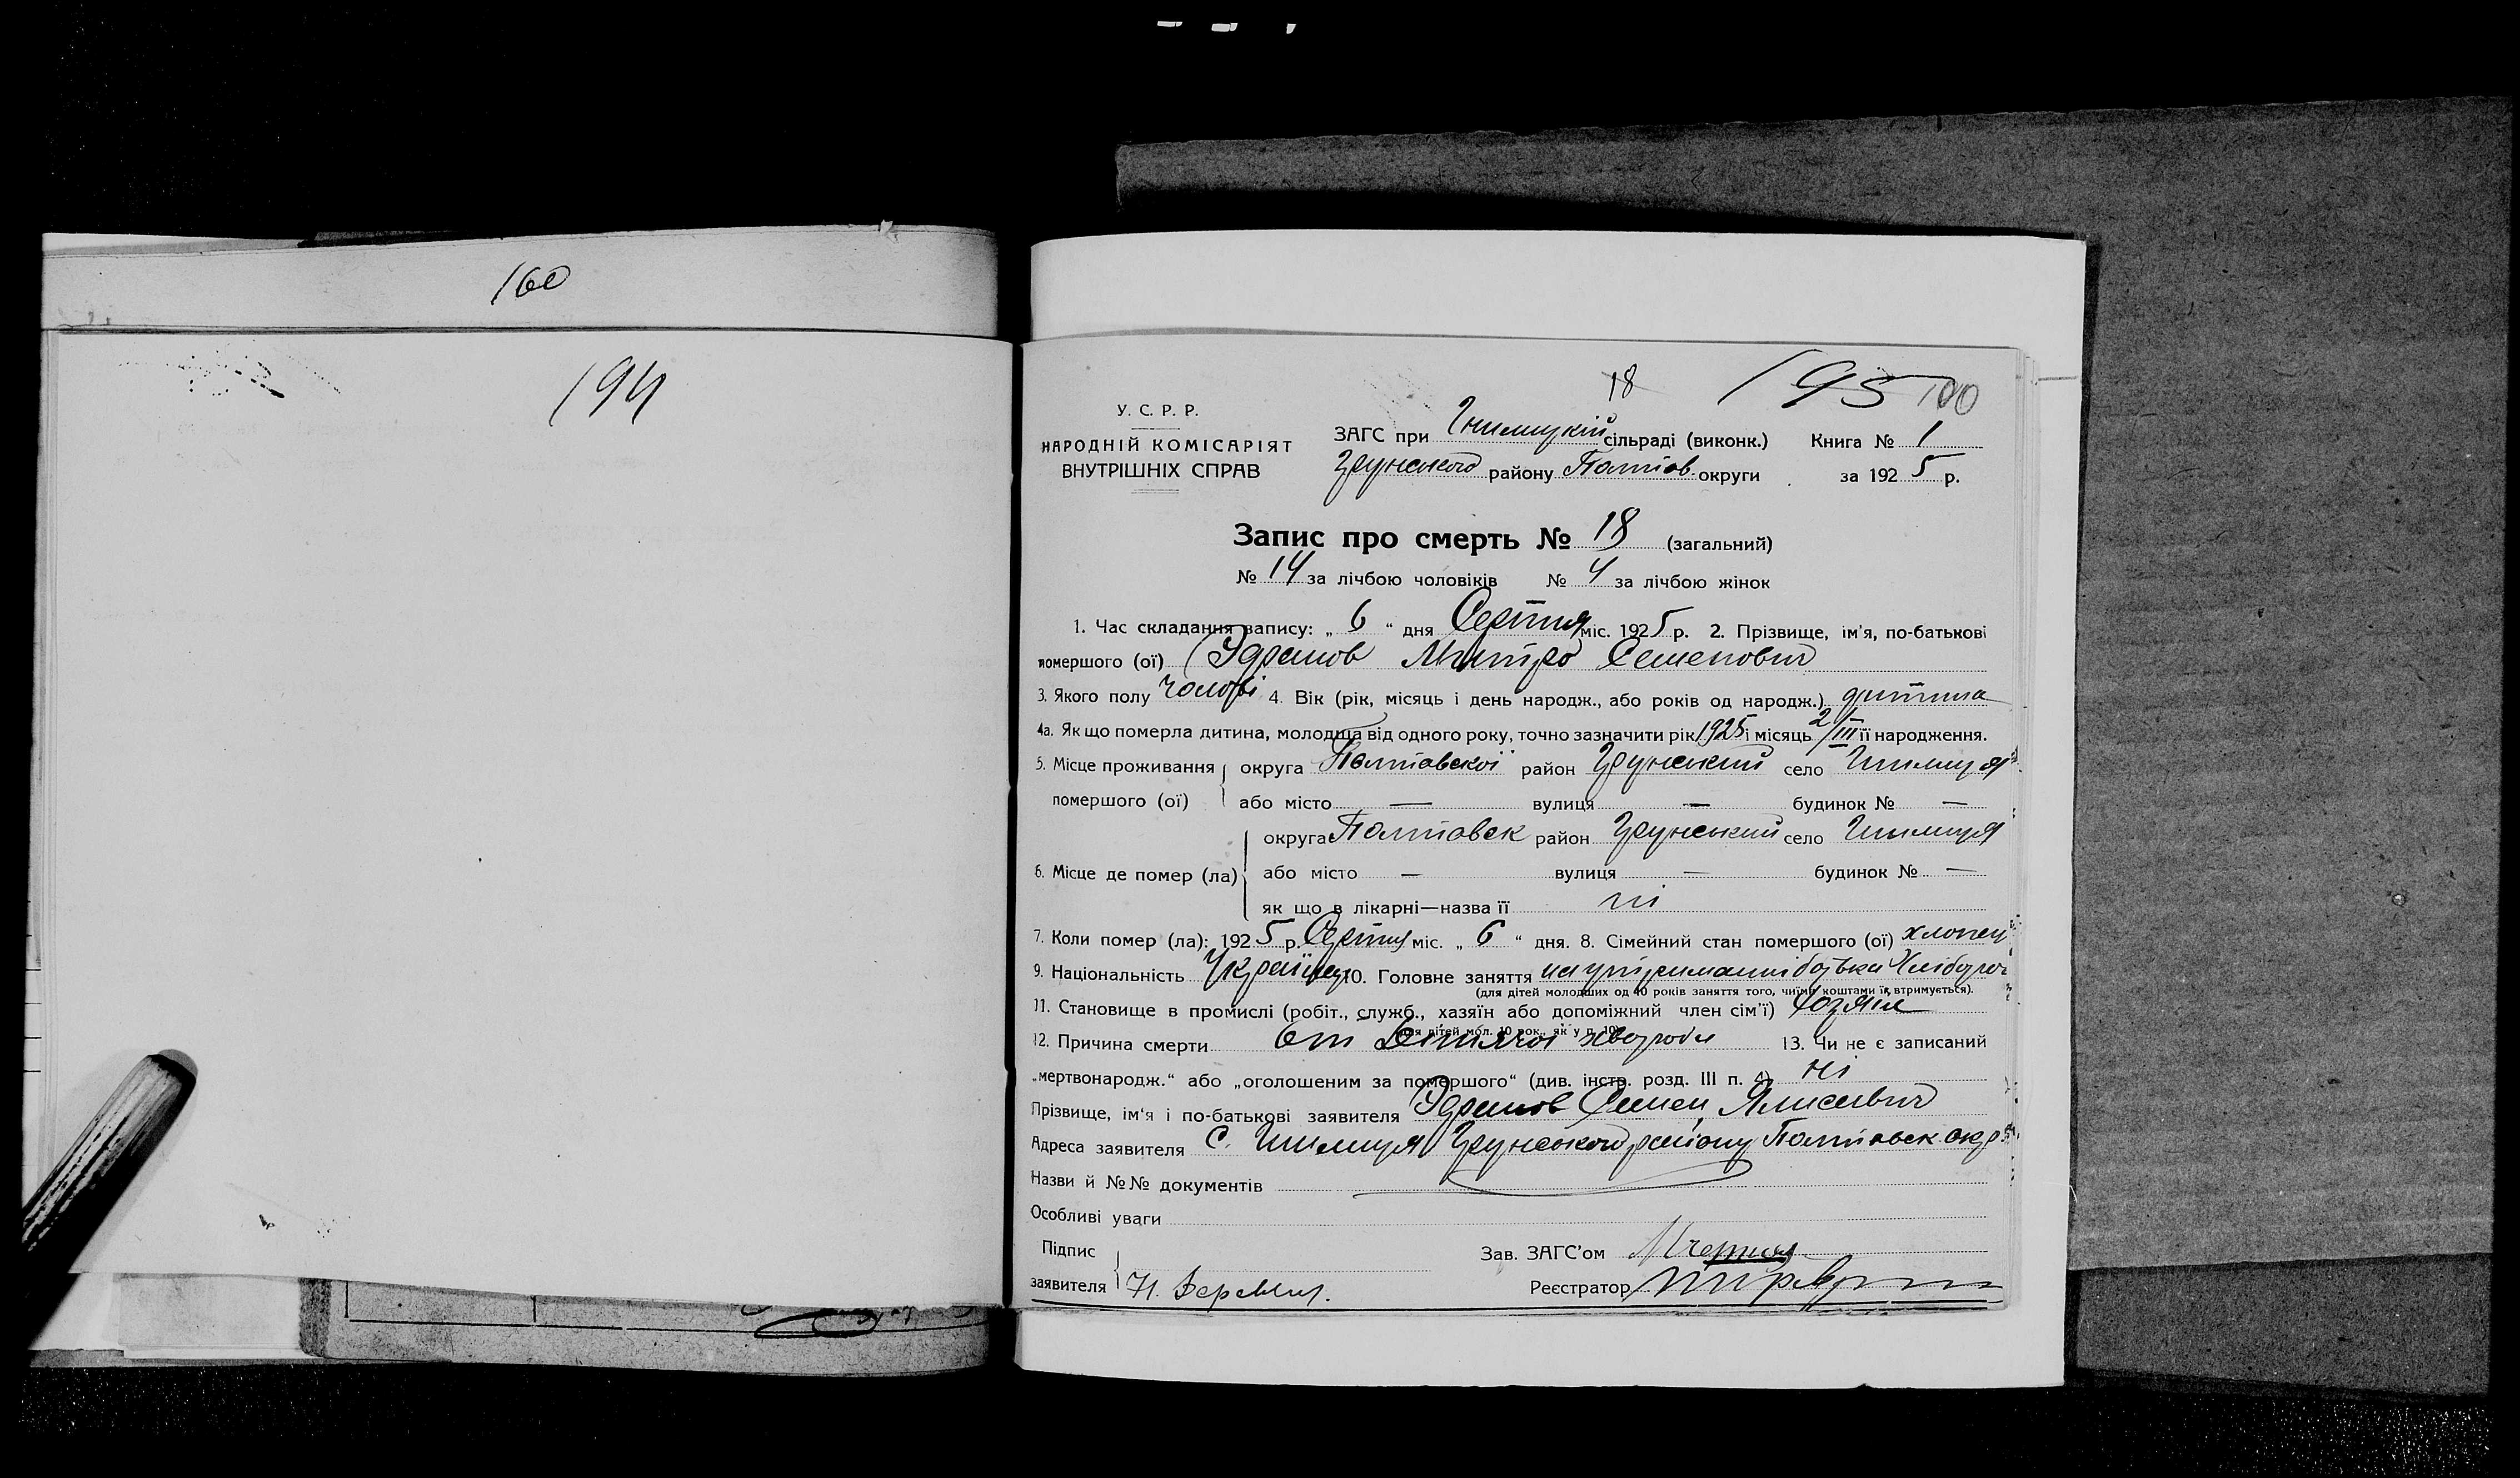 160
194
18 195 100
У. С. Р. Р.
НАРОДНІЙ КОМІСАРІЯТ
ВНУТРІШНІХ СПРАВ
ЗАГС при Гнилицкій сільраді (виконк.) Книга № 1
Грунського району Полтов. округи за 1925 р.
Запис про смерть № 18 (загальний)
№ 14 за лічбою чоловіків № 4 за лічбою жінок
1. Час складання запису: „ 6 “ дня Серпня міс. 1925 р. 2. Прізвище, ім'я, по-батькові
помершого (ої) Митро Семенович
3. Якого полу чолові 4. Вік (рік, місяць і день народж., або років од народж.) дитина
4а. Як що померла дитина, молодша від одного року, точно зазначити рік 1925 і місяць 2/III її народження.
5. Місце проживання округа Полтавскої район Грунський село
помершого (ої) або місто — вулиця — будинок № —
округа Полтавск район Грунський село
6. Місце де помер (ла) або місто — вулиця — будинок № —
як що в лікарні—назва її ні
7. Коли помер (ла): 1925 р. Серпня міс. „ 6 “ дня. 8. Сімейний стан помершого (ої) хлопец
9. Національність Украінец 10. Головне заняття на утриманні батька Хлібороб
(для дітей молодших од 10 років заняття того, чиїми коштами їх втримується).
11. Становище в промислі (робіт., служб., хазяїн або допоміжний член сім'ї) Хозяин
(для дітей мол. 10 рок., як у п. 10)
12. Причина смерти От Дітячої хвороби 13. Чи не є записаний
„мертвонародж.“ або „оголошеним за помершого“ (див. інстр. розд. III п. 4) ні
Прізвище, ім'я і по-батькові заявителя Семен
Адреса заявителя С. Грунського району Полтавск окр
Назви й №№ документів
Особливі уваги
Підпис
заявителя
Зав. ЗАГС'ом
Реєстратор